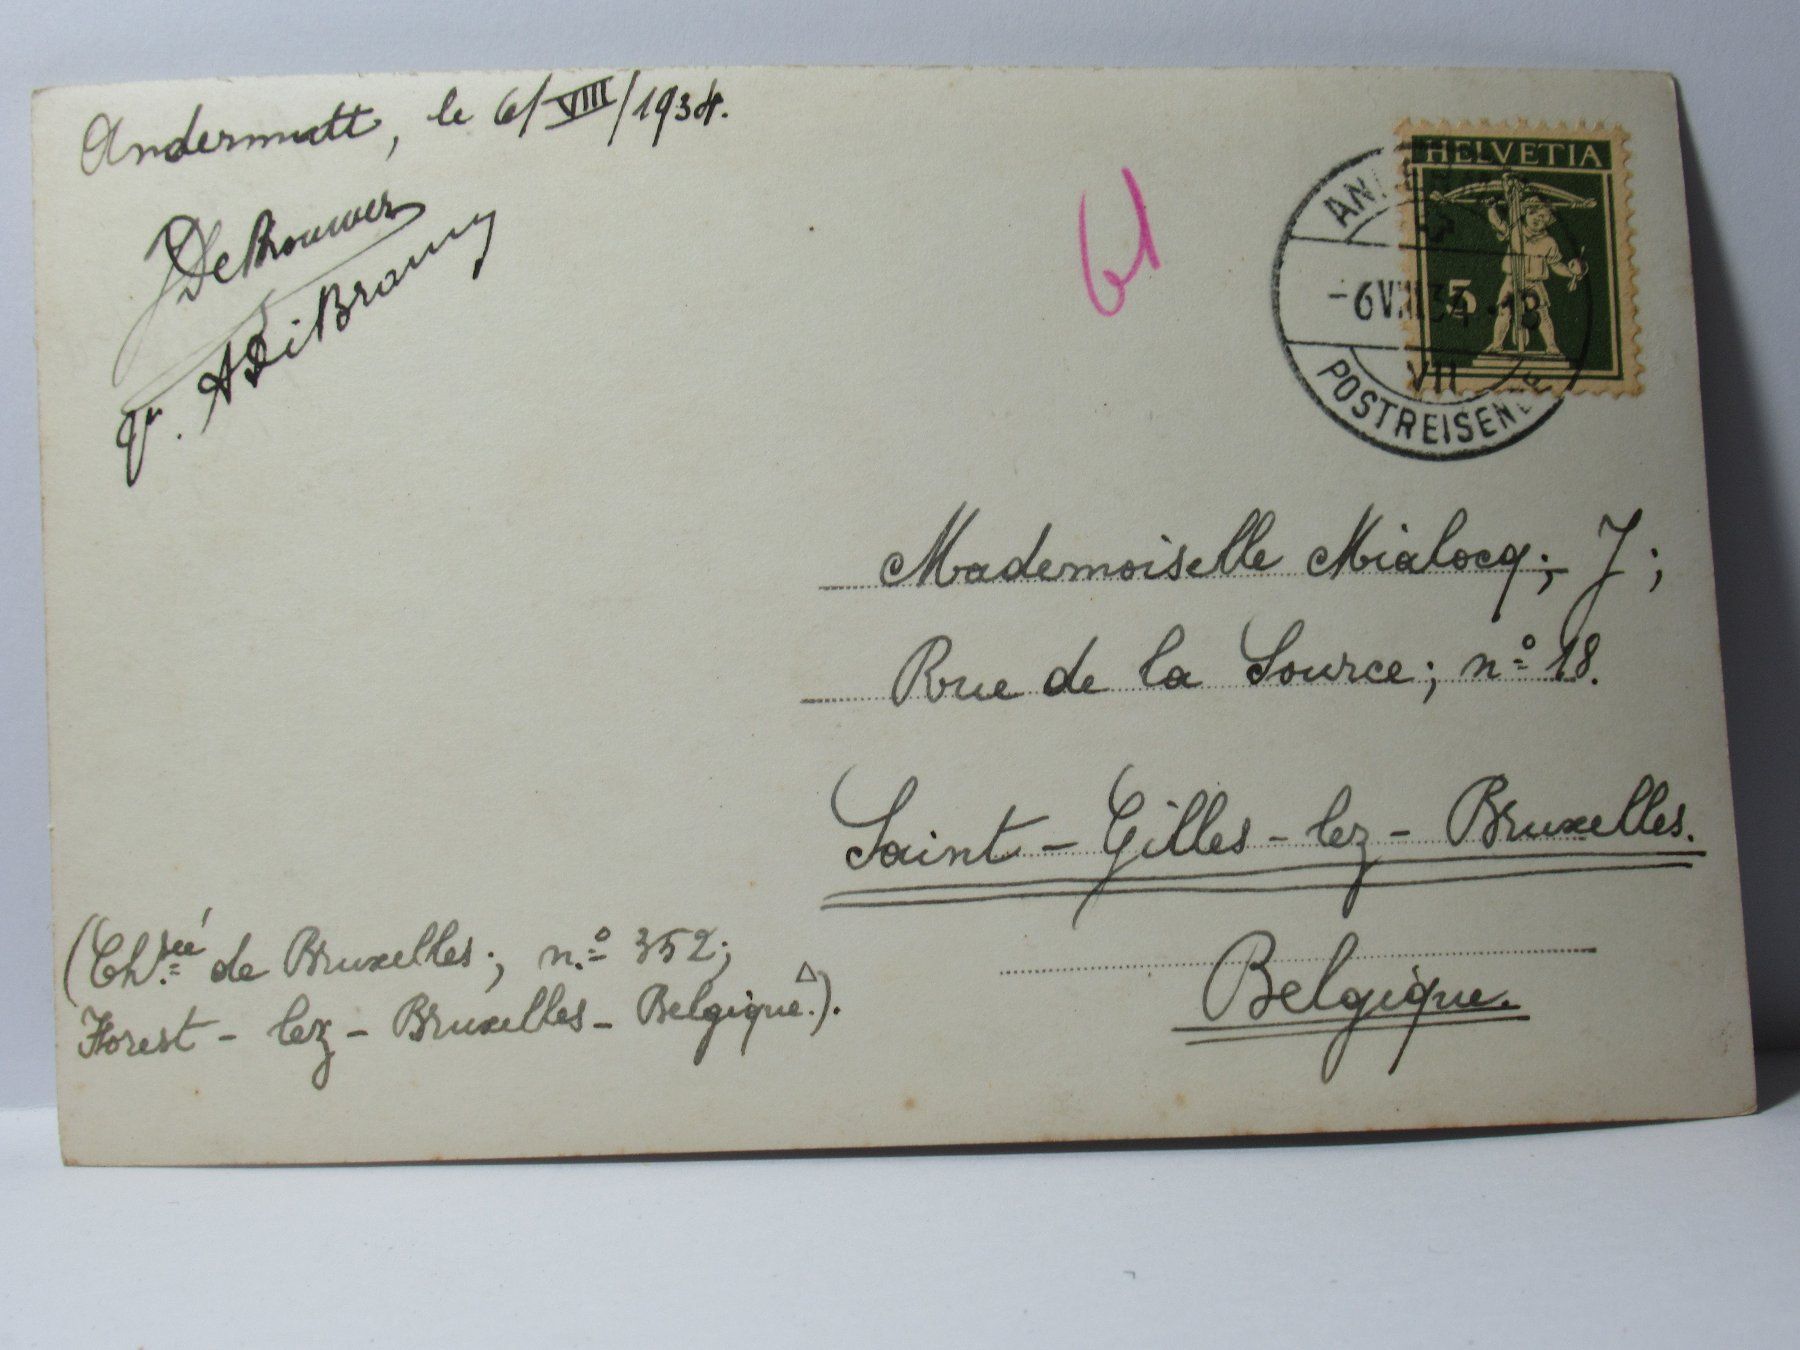 Andermatt, le 6/VIII/1934.
DeBrouwer
61
HELVETIA
5
-6 VIII 34 -18
VII
POSTREISENDE
Mademoiselle Mialocq; J;
Rue de la Source; n° 18.
Saint-Gilles-lez-Bruxelles.
Belgique.
(Chsée de Bruxelles; n° 352;
Forest-lez-Bruxelles-Belgique.).